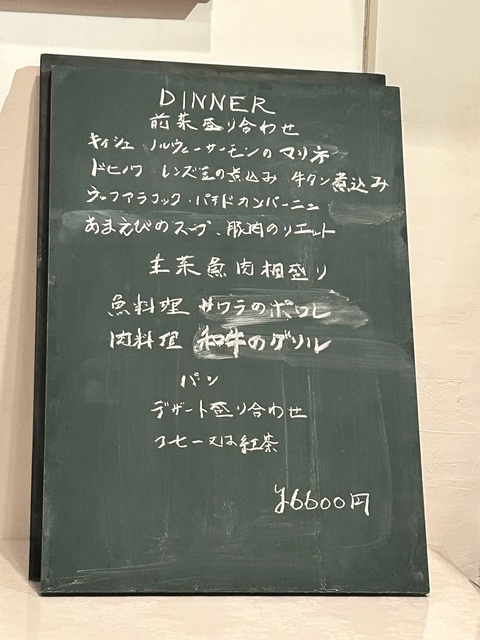 DINNER
前菜盛り合わせ
キッシュ ノルウェーサーモンのマリネ
レンズ豆の煮込み 牛タン煮込み
ウッフアラコック・パテドカンパーニュ
あまえびのスープ、豚肉のリエット
主菜魚肉相盛り
魚料理 サワラのポワレ
肉料理 和牛のグリル
パン
デザート盛り合わせ
コーヒー又は紅茶
¥6600円